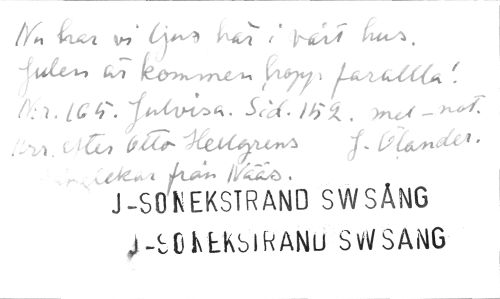 Nu har vi ljus här i vårt hus.
Julen är kommen hopp farallla!
Nr. 165. Julvisa. Sid. 152. mel-not.
Arr. efter Otto Hellgrens J. Ölander.
Sånglekar från Nääs.
J-SONEKSTRAND SWSÅNG
J-SONEKSTRAND SWSANG